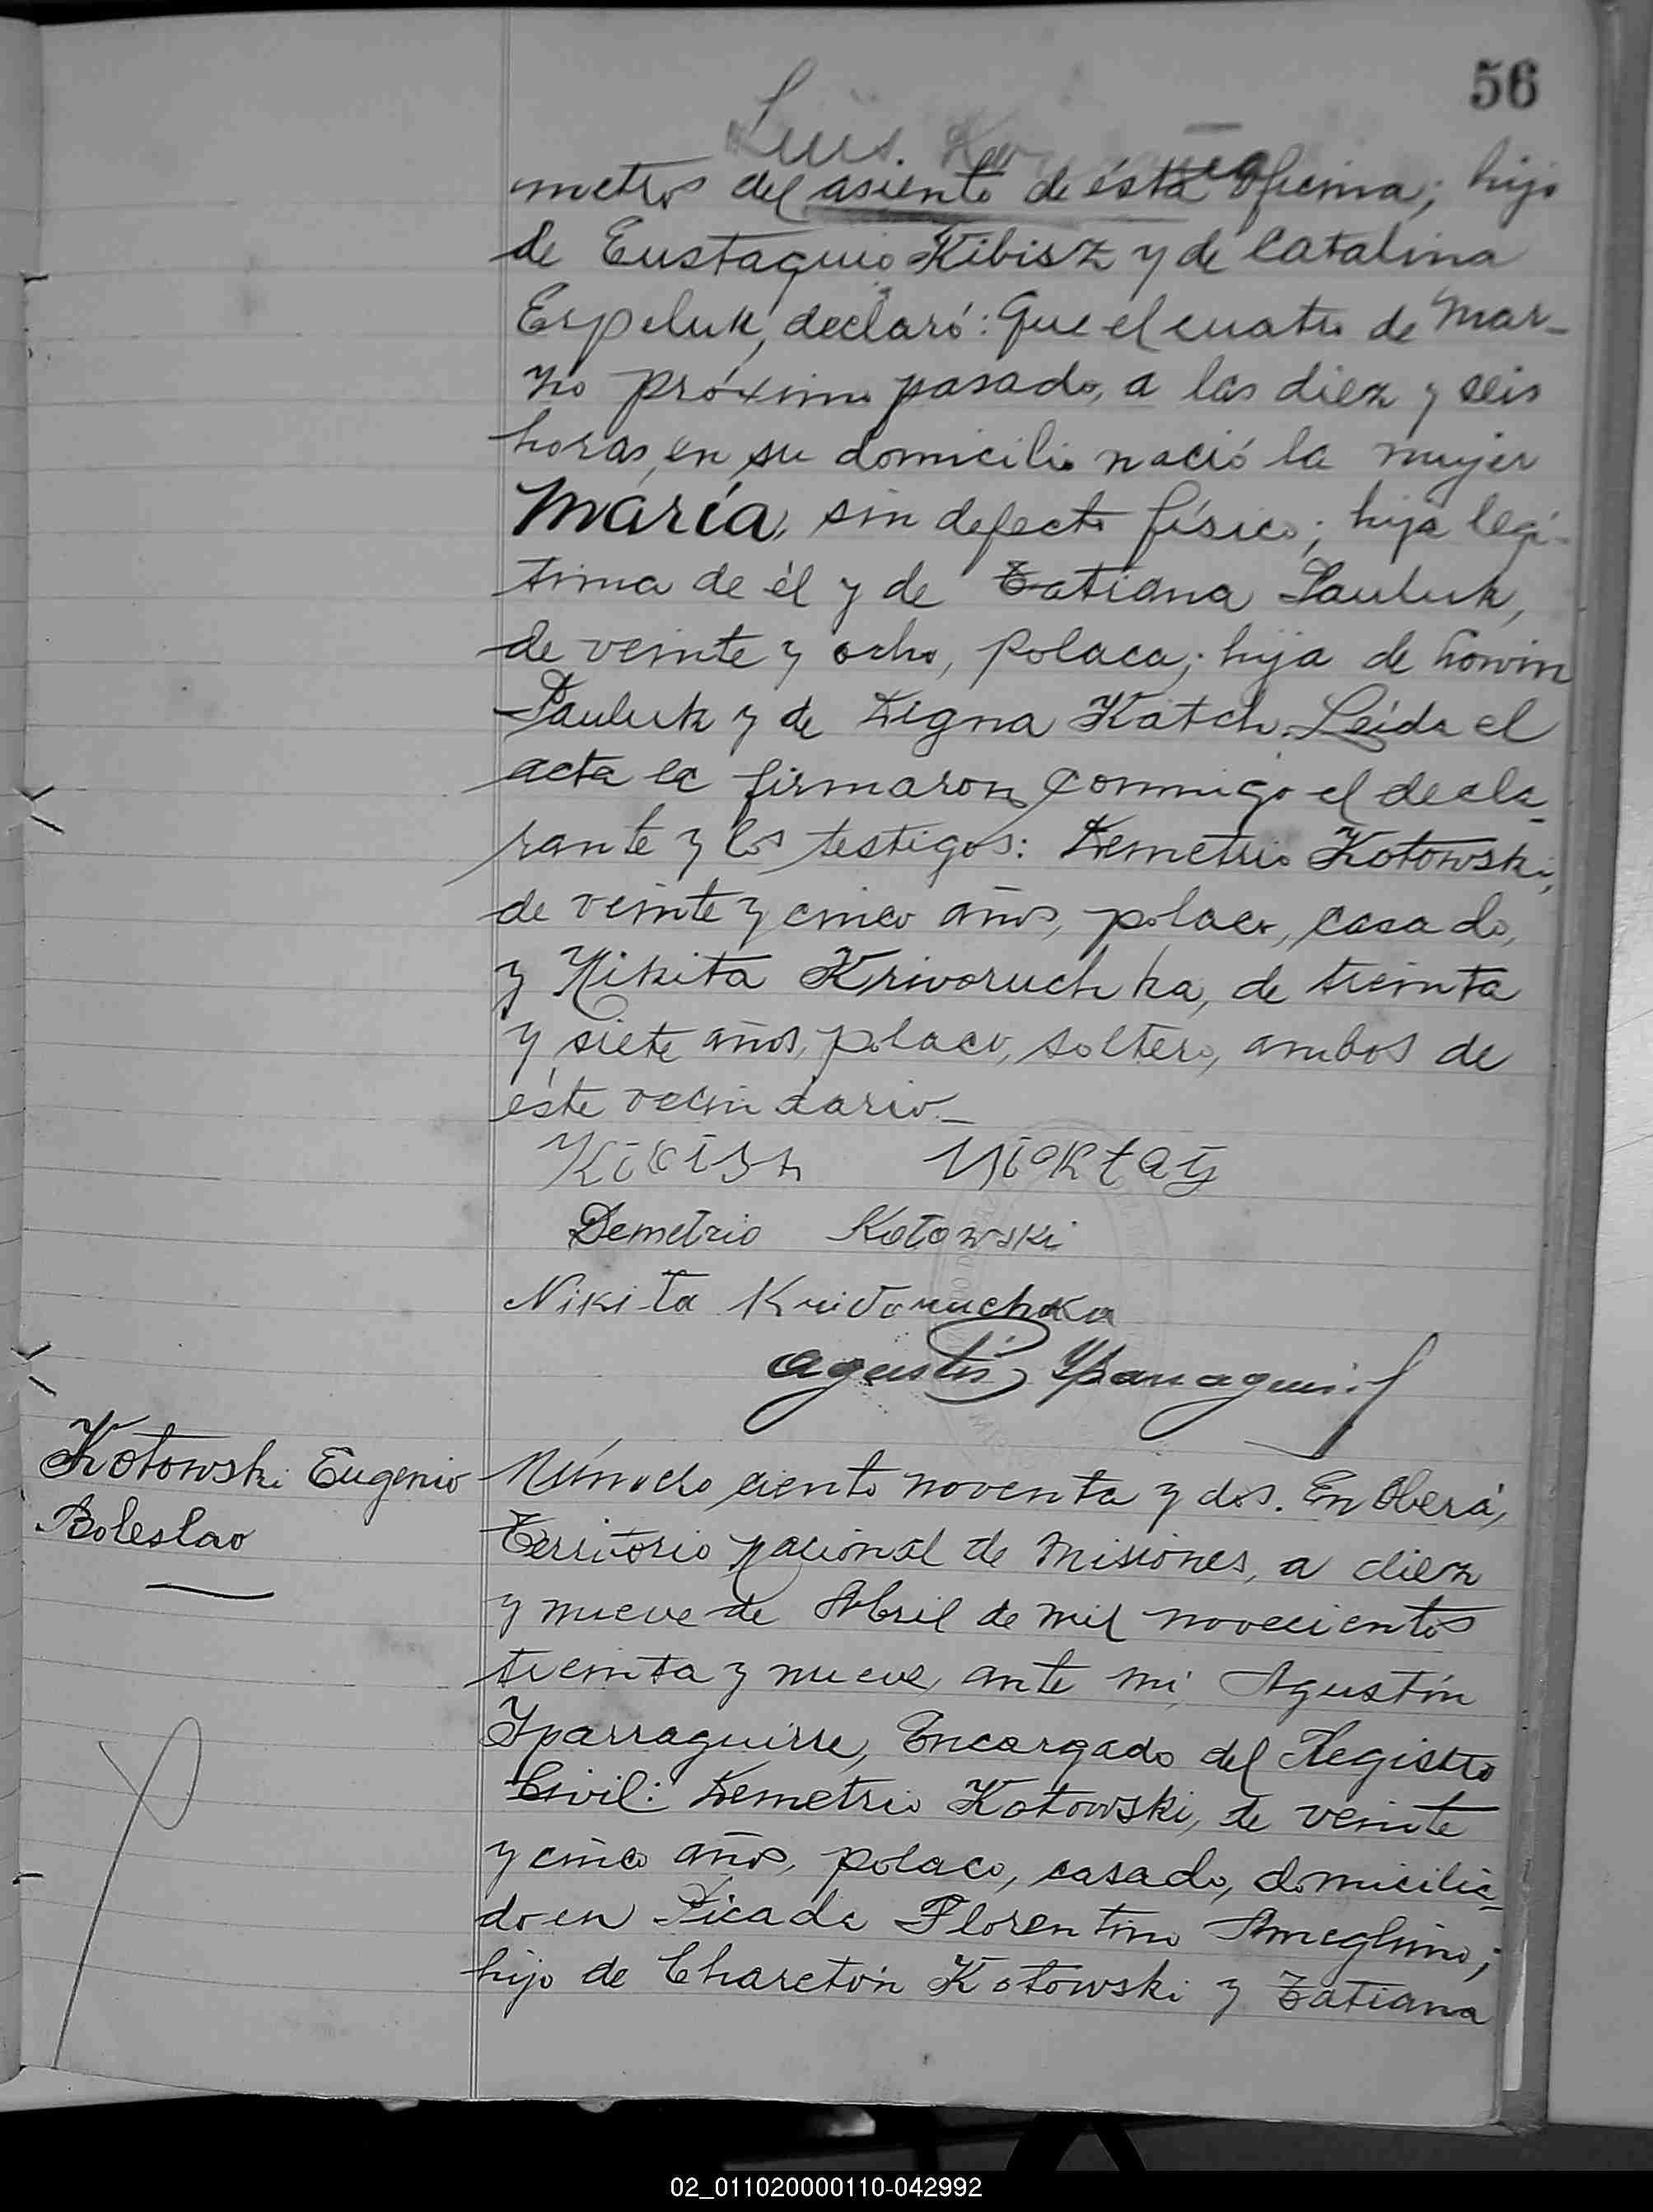 56
Luis.
metros del asiento de ésta oficina; hijo
de Eustaquio Kibisz y de Catalina
Espeluk, declaró: Que el cuatro de Mar-
zo próximo pasado, a las diez y seis
horas, en su domicilio nació la mujer
María, sin defecto físico; hija legí-
tima de él y de Tatiana Pauluk,
de veinte y ocho, polaca; hija de
Pauluk y de Digna Katch. Leída el
acta la firmaron conmigo el decla-
rante y los testigos: Demetrio Kotowski,
de veinte y cinco años, polaco, casado,
y Nikita Krivoruchka, de treinta
y siete años, polaco, soltero, ambos de
éste vecindario.—
Demetrio Kotowski
Nikita Krivoruchka
Agustín Yparraguirre
Kotowski Eugenio
Boleslao
Número ciento noventa y dos. En Oberá,
Territorio Nacional de Misiones, a diez
y nueve de Abril de mil novecientos
treinta y nueve, ante mí, Agustín
Yparraguirre, Encargado del Registro
Civil: Demetrio Kotowski, de veinte
y cinco años, polaco, casado, domicilia-
do en Picada Florentino Ameghino;
hijo de Charetón Kotowski y Tatiana
02_011020000110-042992